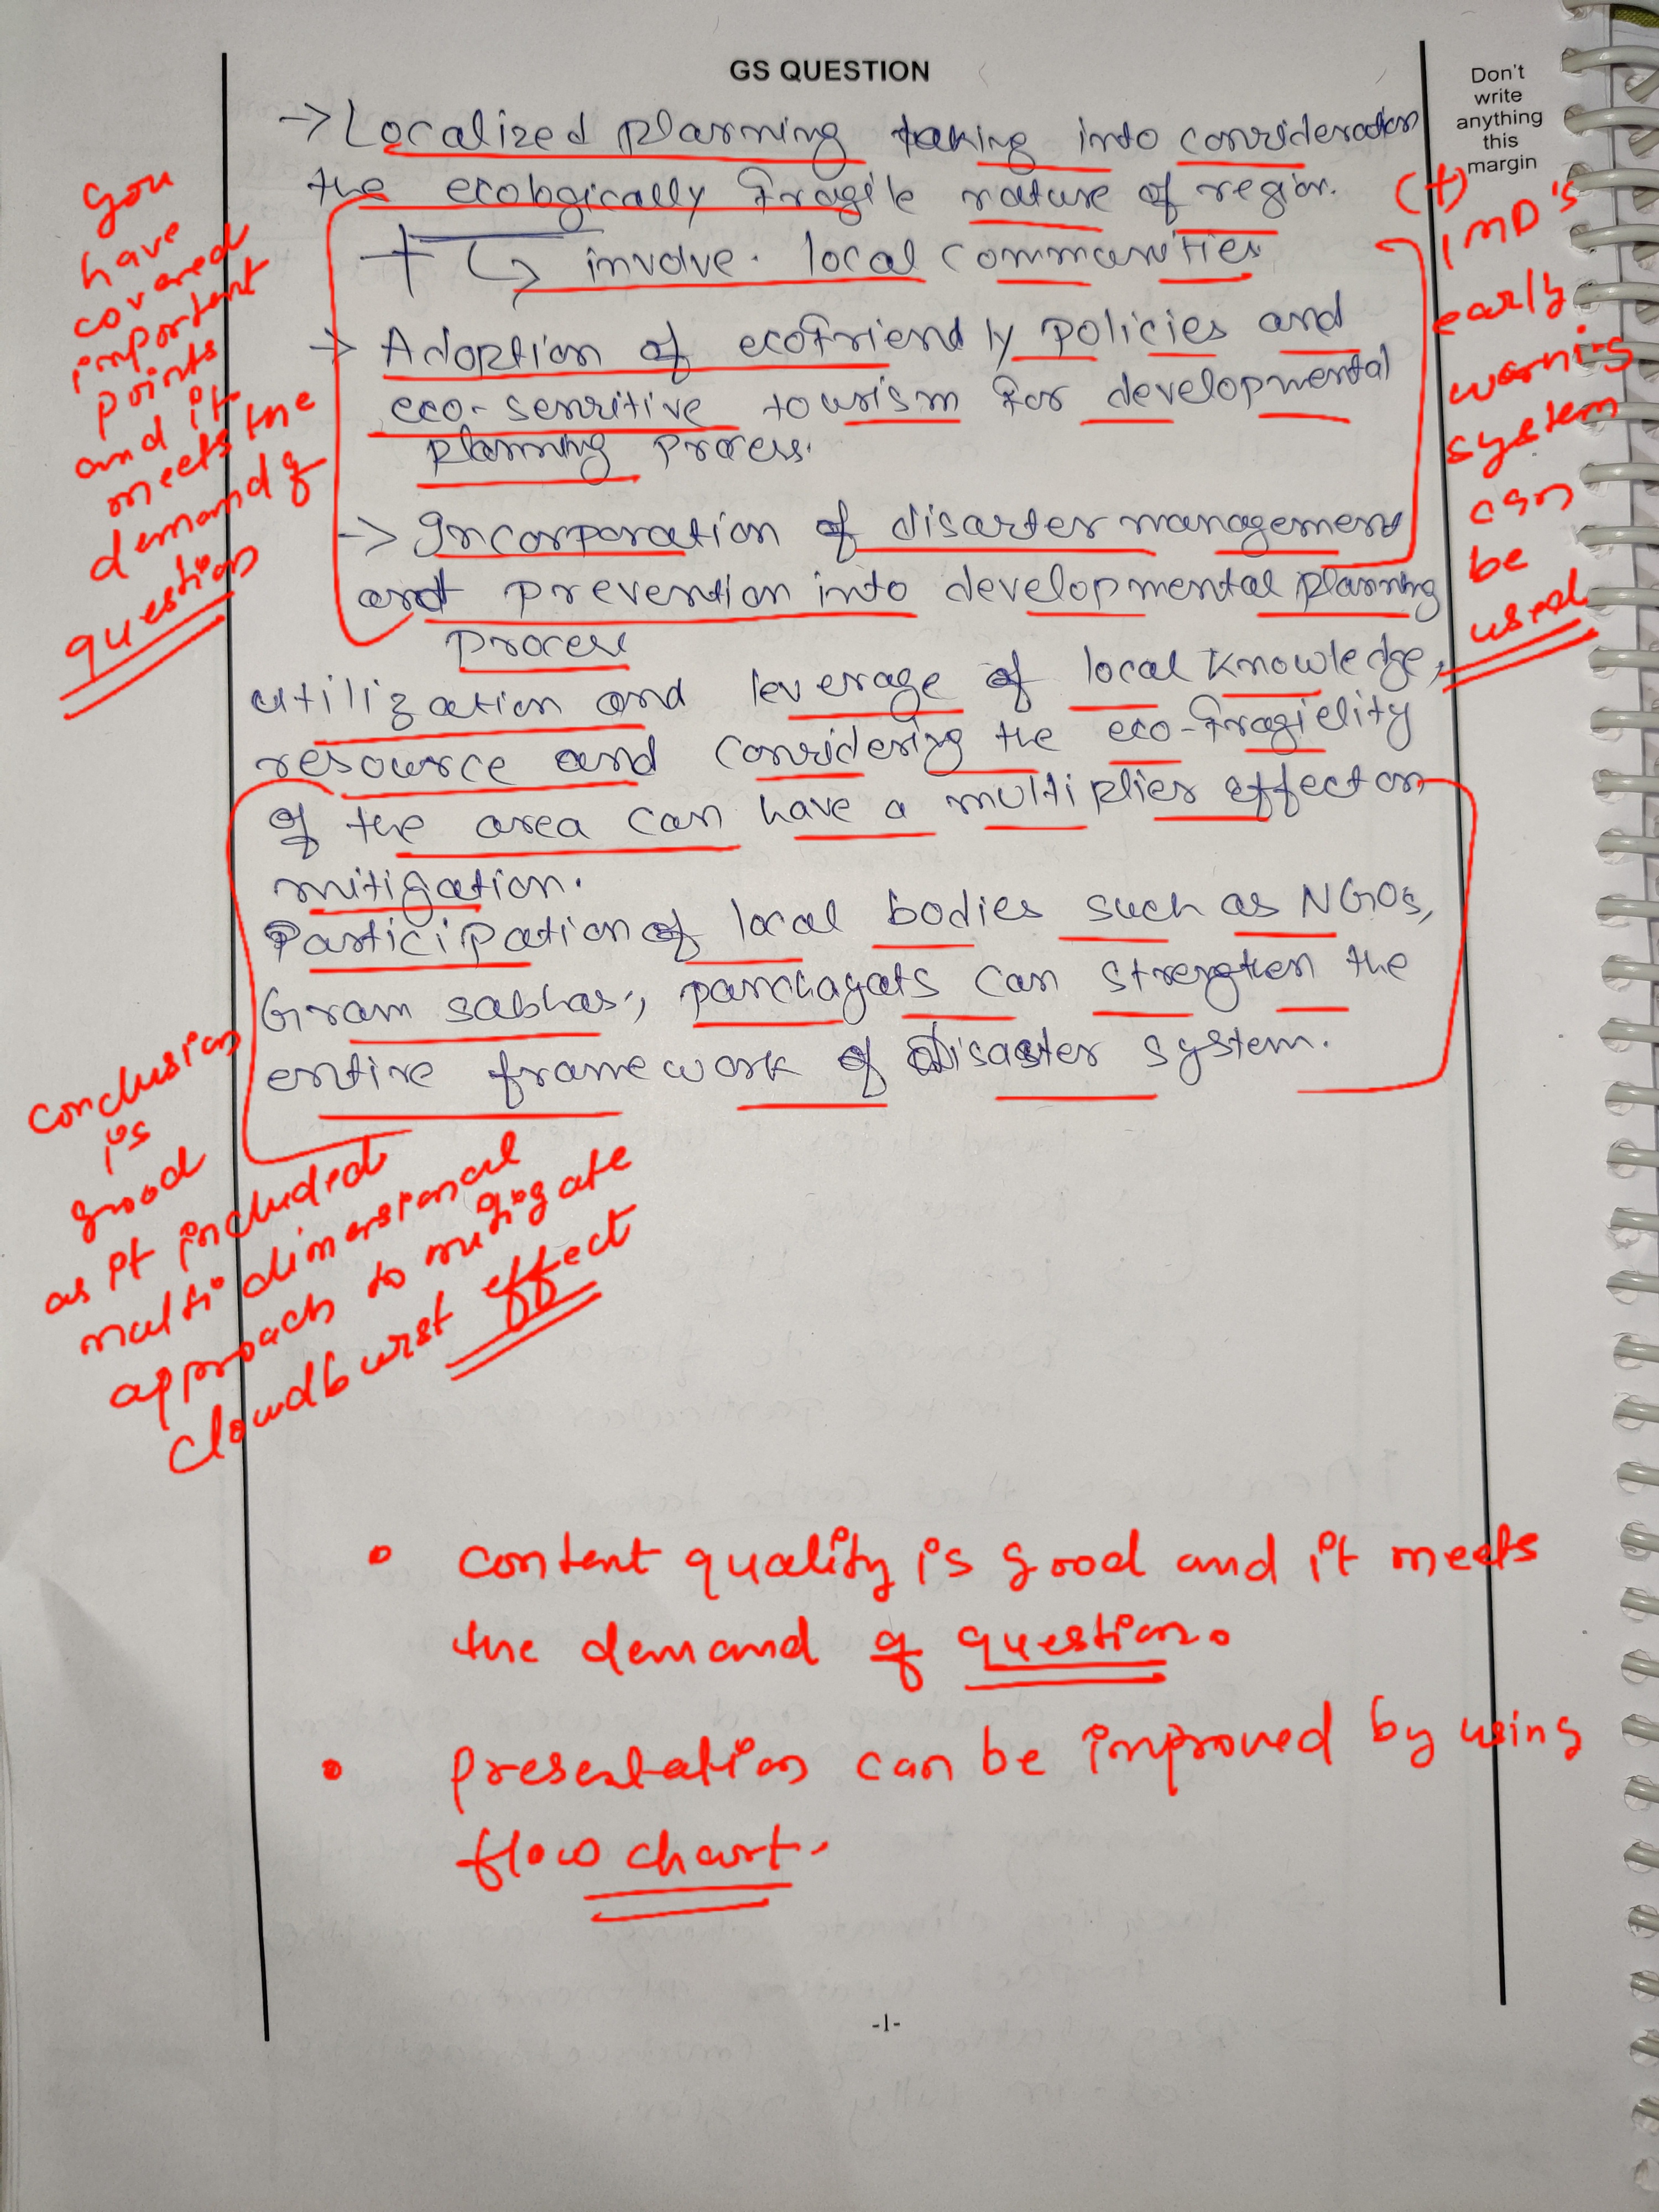 GS QUESTION
Don't
write
anything
this
margin
→ Localized planning taking into consideration
the ecologically fragile nature of region.
+ ↳ involve local communities
→ Adoption of ecofriendly policies and
eco-sensitive tourism for developmental
planning process.
→ Incorporation of disaster management
and prevention into developmental planning
process
utilization and leverage of local knowledge,
resource and considering the eco-fragielity
of the area can have a multiplier effect on
mitigation.
Participation of local bodies such as NGOs,
Gram sabhas, panchayats can strengthen the
entire framework of Disaster system.
you
have
covered
important
points
and it
meets the
demand of
question
(+)
IMD's
early
warning
system
can
be
used
conclusion
is
good
as it included
multi dimensional
approach to mitigate
cloudburst effect
• content quality is good and it meets
the demand of question.
• presentation can be improved by using
flow chart.
-1-